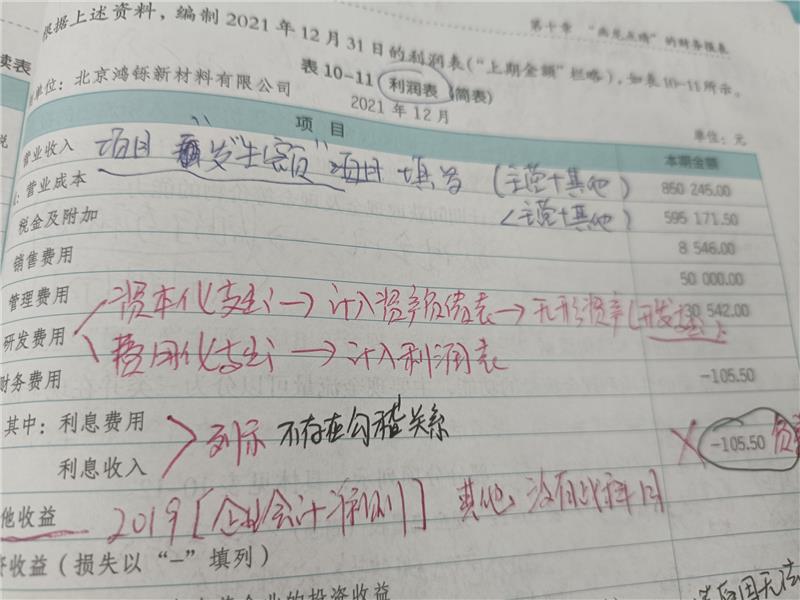 第十章 “画龙点睛”的财务报表
根据上述资料，编制2021年12月31日的利润表(“上期金额”栏略)，如表10-11所示。
续表
表10-11 利润表(简表)
单位：北京鸿铄新材料有限公司
2021年12月
单位：元
项目 本期金额
营业收入 项目 发生额 项目 填写 (主营+其他) 850 245.00
：营业成本 (主营+其他) 595 171.50
税金及附加 8 546.00
销售费用 50 000.00
管理费用 资本化支出→计入资产负债表→无形资产(开发支出) 30 542.00
研发费用 费用化支出→计入利润表
财务费用 -105.50
其中：利息费用 列示 不存在勾稽关系
利息收入 -105.50 负
他收益 2019[企业会计准则] 其他,没有此科目
资收益(损失以“-”填列)
企业的投资收益